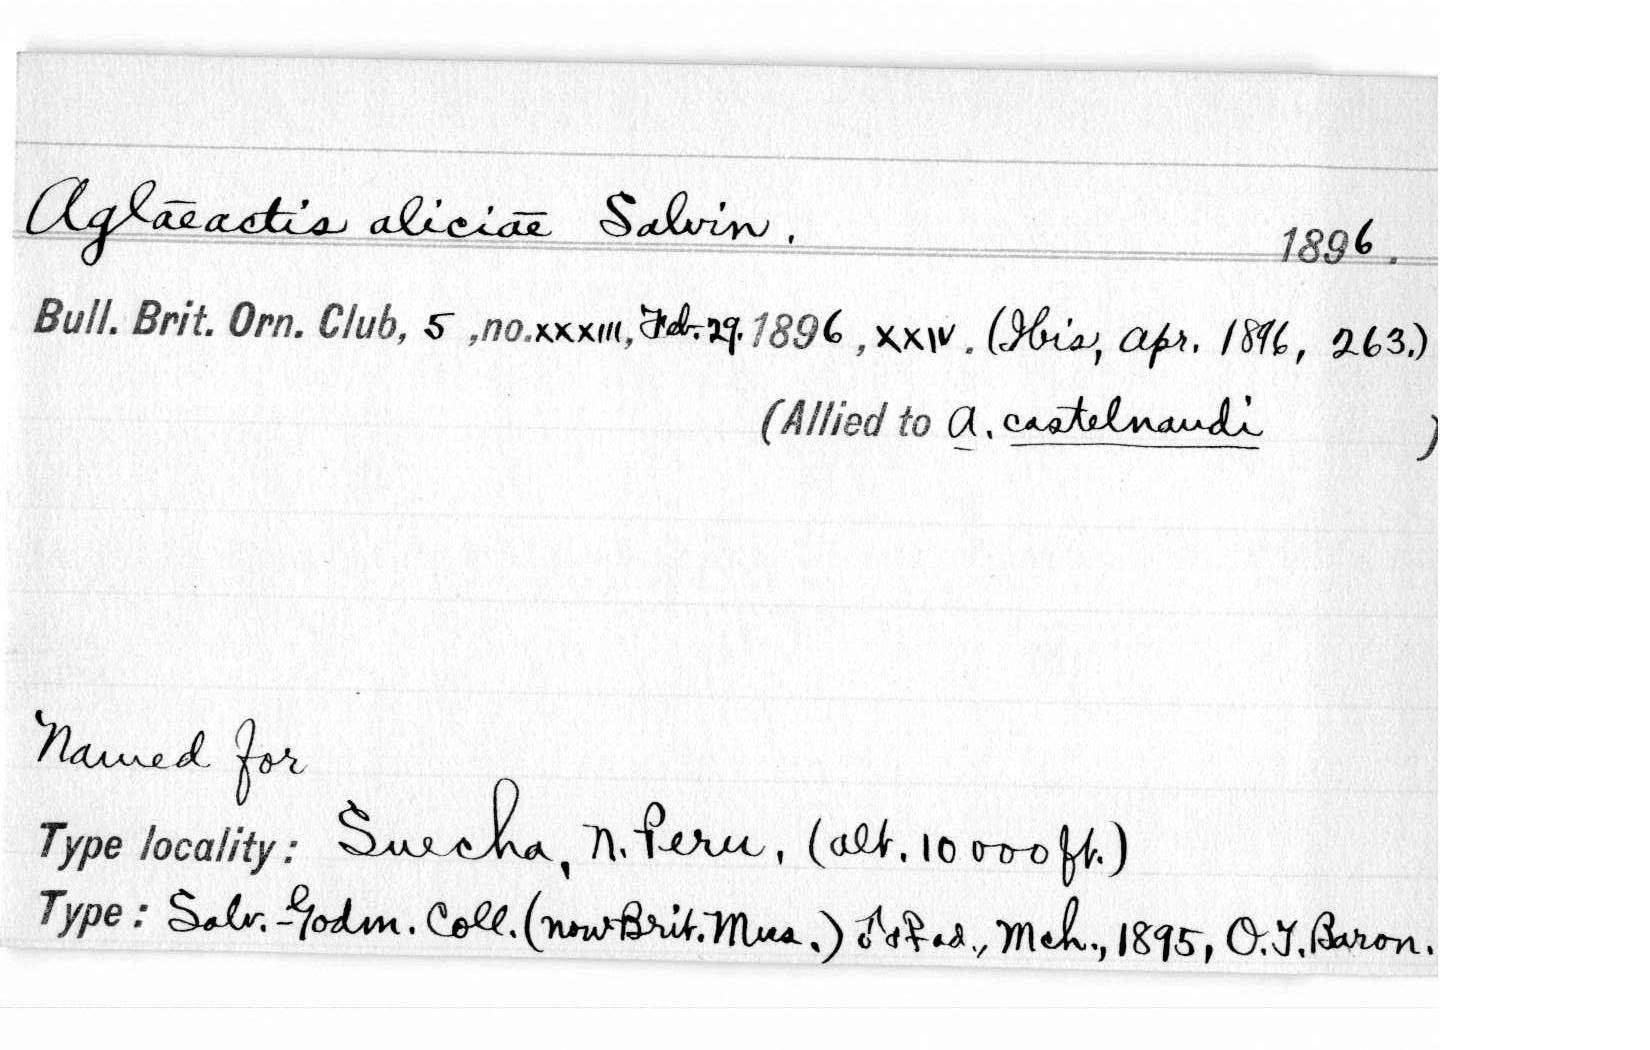 Aglaeactis aliciae Salvin. 1896.
Bull. Brit. Orn. Club, 5, no. xxxiii, Feb. 29. 1896, xxiv. (Ibis, Apr. 1896, 263.)
(Allied to A. castelnaudi )
Named for
Type locality: Suecha, N. Peru, (alt. 10 000 ft.)
Type: Salv.-Godm. Coll. (now Brit. Mus.) ♂ & ♀ ad., Mch., 1895, O.T. Baron.